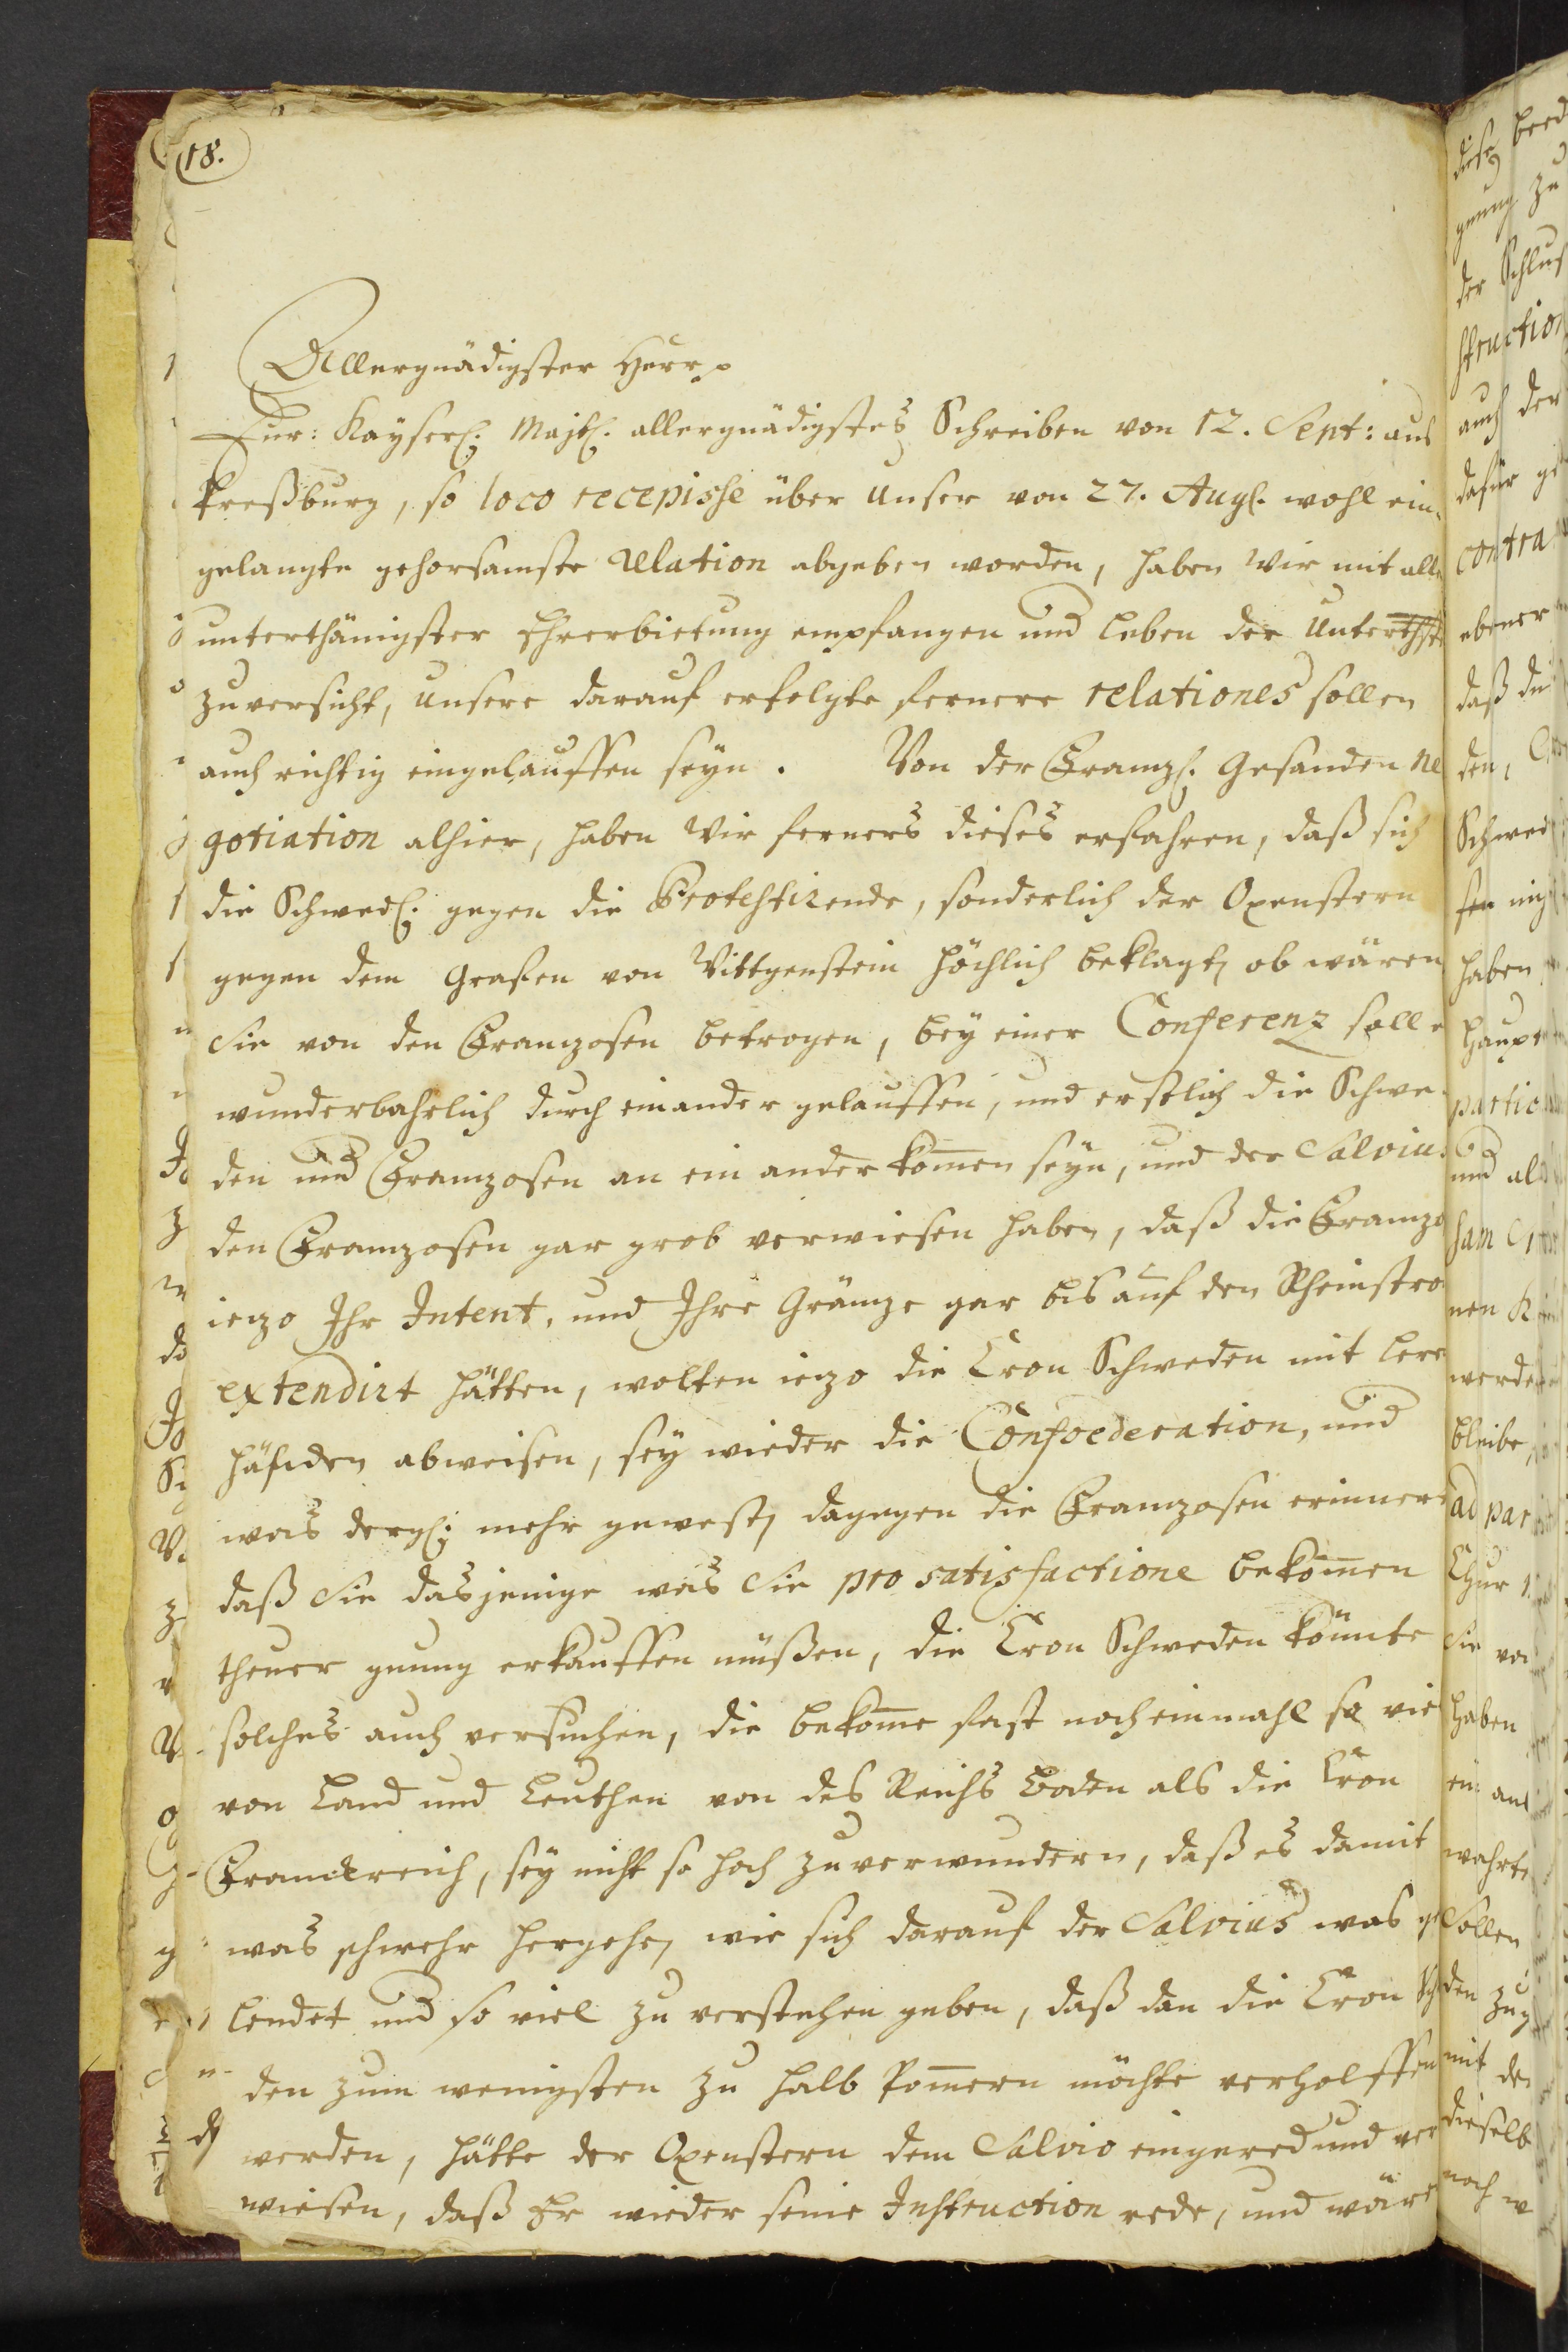 18.
Allergnädigster Herr
Eur: Kayserl: Majtl: allergnädigstes Schreiben von 12. Sept: aus
Preßburg, so loco recepisse über unser von 27. Augl. wohl ein-
gelangte gehorsamste relation abgeben worden, haben wir mit alle
unterthänigster Ehrerbietung empfangen und leben der Unterthste
zuversicht, unsere darauf erfolgte fernere relationes sollen
auch richtig eingelauffen seyn. Von der Franzl: Gesanden ne
gotiation alhier, haben wir ferners dieses erfahren, daß sich
die Schwedl: gegen die Protestirende, sonderlich der Oxenstern
gegen dem Grafen von Wittgenstein höchlich beklagt, ob wären
Sie von den Franzosen betrogen, bey einer Conferenz soll e
wunderbahrlich durch einander gelauffen, und erstlich die Schwe
den und Franzosen an ein ander kom̄en seyn, und der Salvius
den Franzosen gar grob verwiesen haben, daß die Franzo
iezo Ihr Intent, und Ihre Gränze gar bis auf den Rheinstro
extendirt hätten, wolten iezo die Cron Schweden mit leer
händen abweisen, sey wieder die Confoederation, und
was dergl: mehr gewest, dagegen die Franzosen erinnert
daß Sie dasjenige was Sie pro satisfactione bekom̄en
theuer genung erkauffen müßen, die Cron Schweden könnte
solches auch versuchen, die bekom̄e fast noch einmahl so vie
von Land und Leuthen von des Reichs Boden als die Cron
Franckreich, sey nicht so hoch zuverwundern, daß es damit
was schwehr hergehe, wie sich darauf der Salvius was ge
lendet und so viel zu verstehen geben, daß dan die Cron Sch
den zum wenigsten zu halb Pom̄ern möchte verholffen
werden, hätte der Oxenstern dem Salvio eingered und ver
wiesen, daß Er wieder seine Instruction rede, und wäre